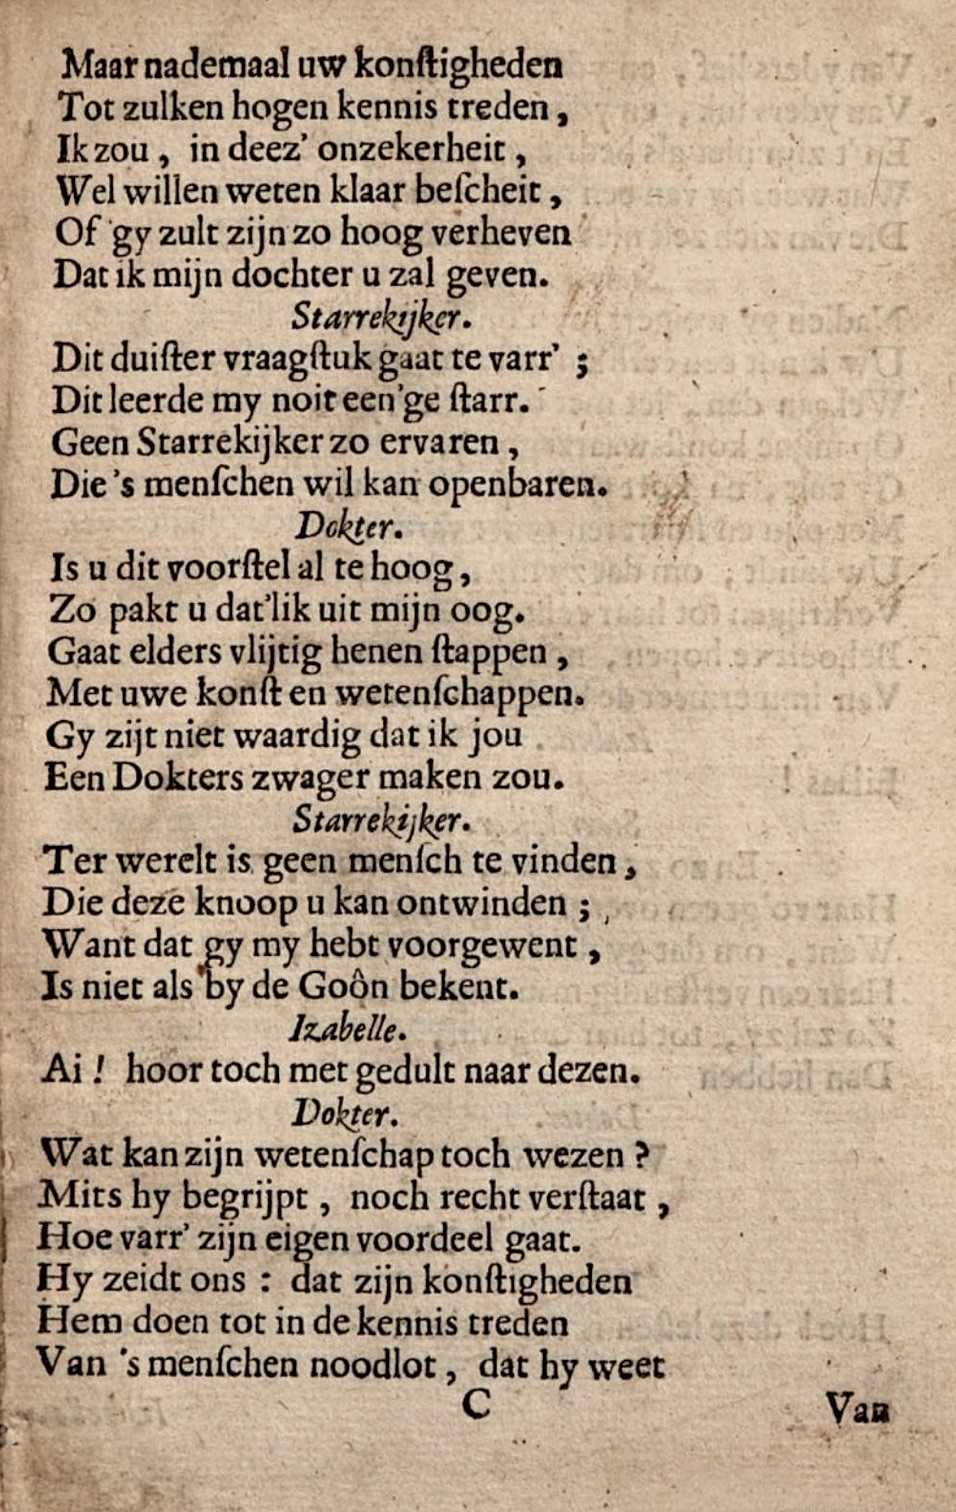 Maar nademaal uw konſtigheden
Tot zulken hogen kennis treden,
Ik zou, in deez' onzekerheit,
Wel willen weten klaar beſcheit,
Of gy zult zijn zo hoog verheven
Dat ik mijn dochter u zal geven.
Starrekijker.
Dit duiſter vraagſtuk gaat te varr' ;
Dit leerde my noit een'ge ſtarr.
Geen Starrekijker zo ervaren,
Die 's menſchen wil kan openbaren.
Dokter.
Is u dit voorſtel al te hoog,
Zo pakt u dat'lik uit mijn oog.
Gaat elders vlijtig henen ſtappen,
Met uwe konſt en wetenſchappen.
Gy zijt niet waardig dat ik jou
Een Dokters zwager maken zou.
Starrekijker.
Ter werelt is geen menſch te vinden,
Die deze knoop u kan ontwinden ;
Want dat gy my hebt voorgewent,
Is niet als by de Goôn bekent.
Izabelle.
Ai ! hoor toch met gedult naar dezen.
Dokter.
Wat kan zijn wetenſchap toch wezen ?
Mits hy begrijpt, noch recht verſtaat,
Hoe varr' zijn eigen voordeel gaat.
Hy zeidt ons : dat zijn konſtigheden
Hem doen tot in de kennis treden
Van 's menſchen noodlot, dat hy weet
C Van